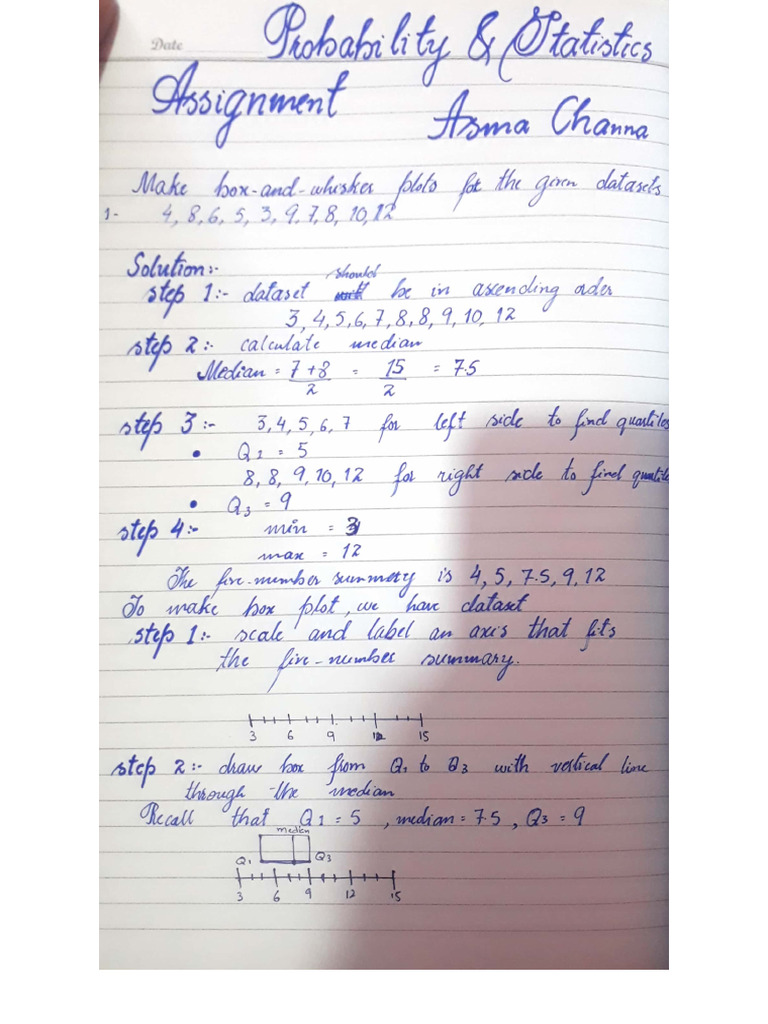 Date
Probability & Statistics
Assignment
Asma Channa
Make box-and-whisker plots for the given datasets
1- 4, 8, 6, 5, 3, 9, 7, 8, 10, 12
Solution:-
should
step 1:- dataset be in ascending order
3, 4, 5, 6, 7, 8, 8, 9, 10, 12
step 2:- calculate median
Median = 7+8/2 = 15/2 = 7.5
step 3:- 3, 4, 5, 6, 7 for left side to find quartiles
• Q1 = 5
8, 8, 9, 10, 12 for right side to find quartile
• Q3 = 9
step 4:- min = 3
max = 12
The five-number summery is 4, 5, 7.5, 9, 12
To make box plot, we have dataset
step 1:- scale and label an axis that fits
the five-number summary.
3 6 9 12 15
step 2:- draw box from Q1 to Q3 with vertical line
through the median
Recall that Q1 = 5, median = 7.5, Q3 = 9
median
Q1 Q3
3 6 9 12 15